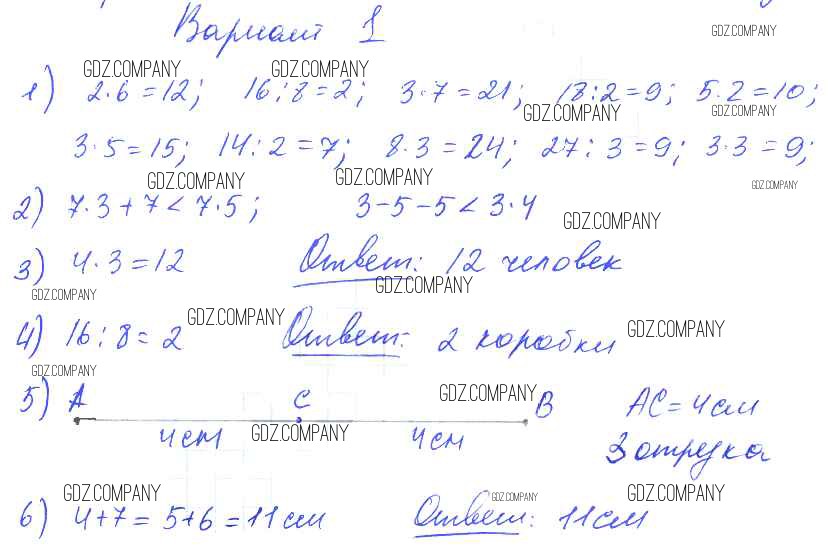 Вариант 1
GDZ.COMPANY
GDZ.COMPANY GDZ.COMPANY
1) 2·6=12; 16:8=2; 3·7=21; 18:2=9; 5·2=10;
GDZ.COMPANY GDZ.COMPANY
3·5=15; 14:2=7; 8·3=24; 27:3=9; 3·3=9;
GDZ.COMPANY GDZ.COMPANY GDZ.COMPANY
2) 7·3+7<7·5; 3-5-5<3·4
GDZ.COMPANY
3) 4·3=12 Ответ: 12 человек
GDZ.COMPANY GDZ.COMPANY
4) 16:8=2 Ответ: 2 коробки
GDZ.COMPANY GDZ.COMPANY
GDZ.COMPANY GDZ.COMPANY
5) A C B AC=4см
4см GDZ.COMPANY 4см 3 отрезка
GDZ.COMPANY GDZ.COMPANY GDZ.COMPANY
6) 4+7=5+6=11см Ответ: 11см